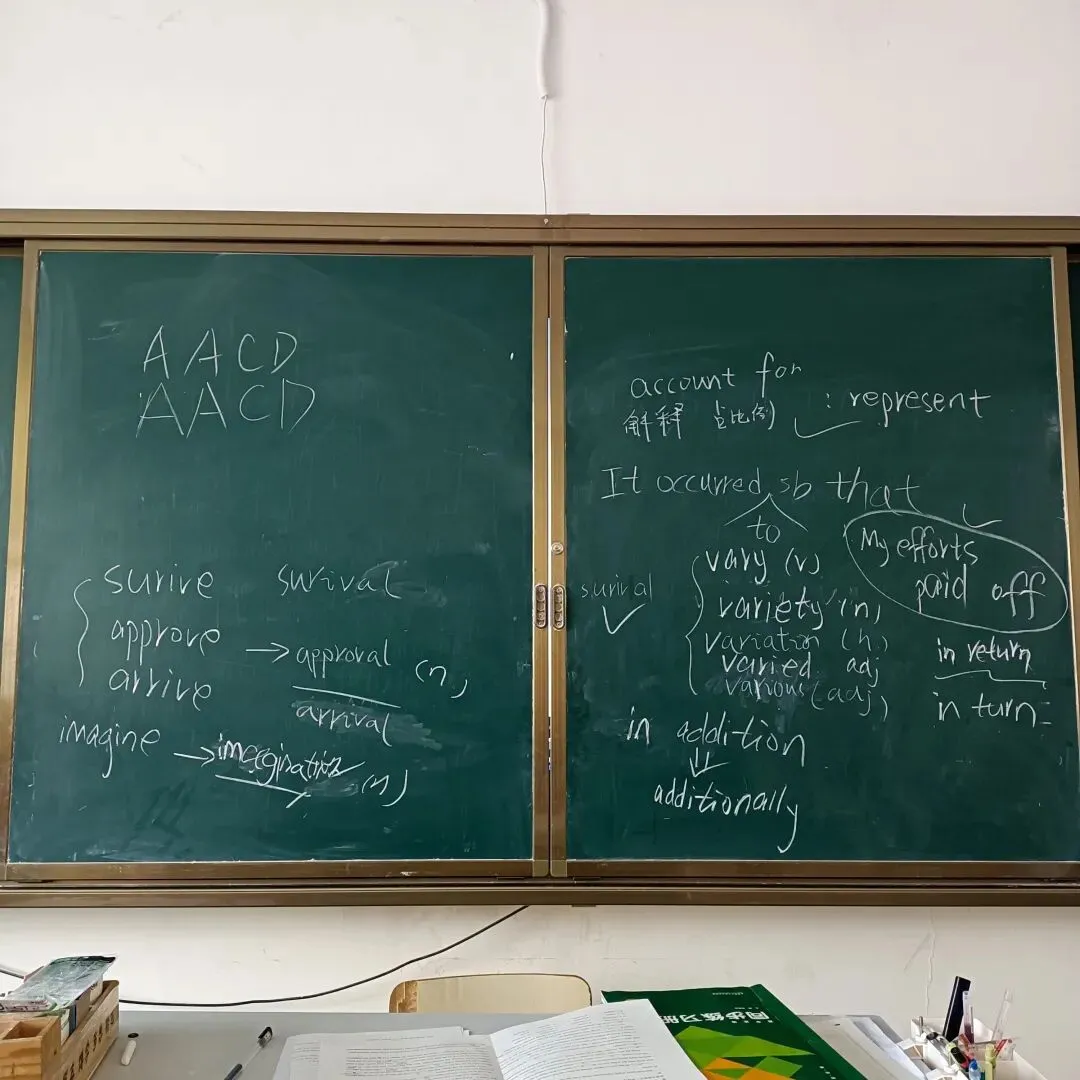 AACD
AACD
surive surival
approve → approval (n)
arrive arrival
imagine → imeegination (n)
account for
解释 占比例 : represent
It occurred sb that
to
My efforts
paid off
surival
vary (v)
variety (n)
variation (n)
varied adj
various (adj)
in return
in turn:
in addition
additionally
同步练习册